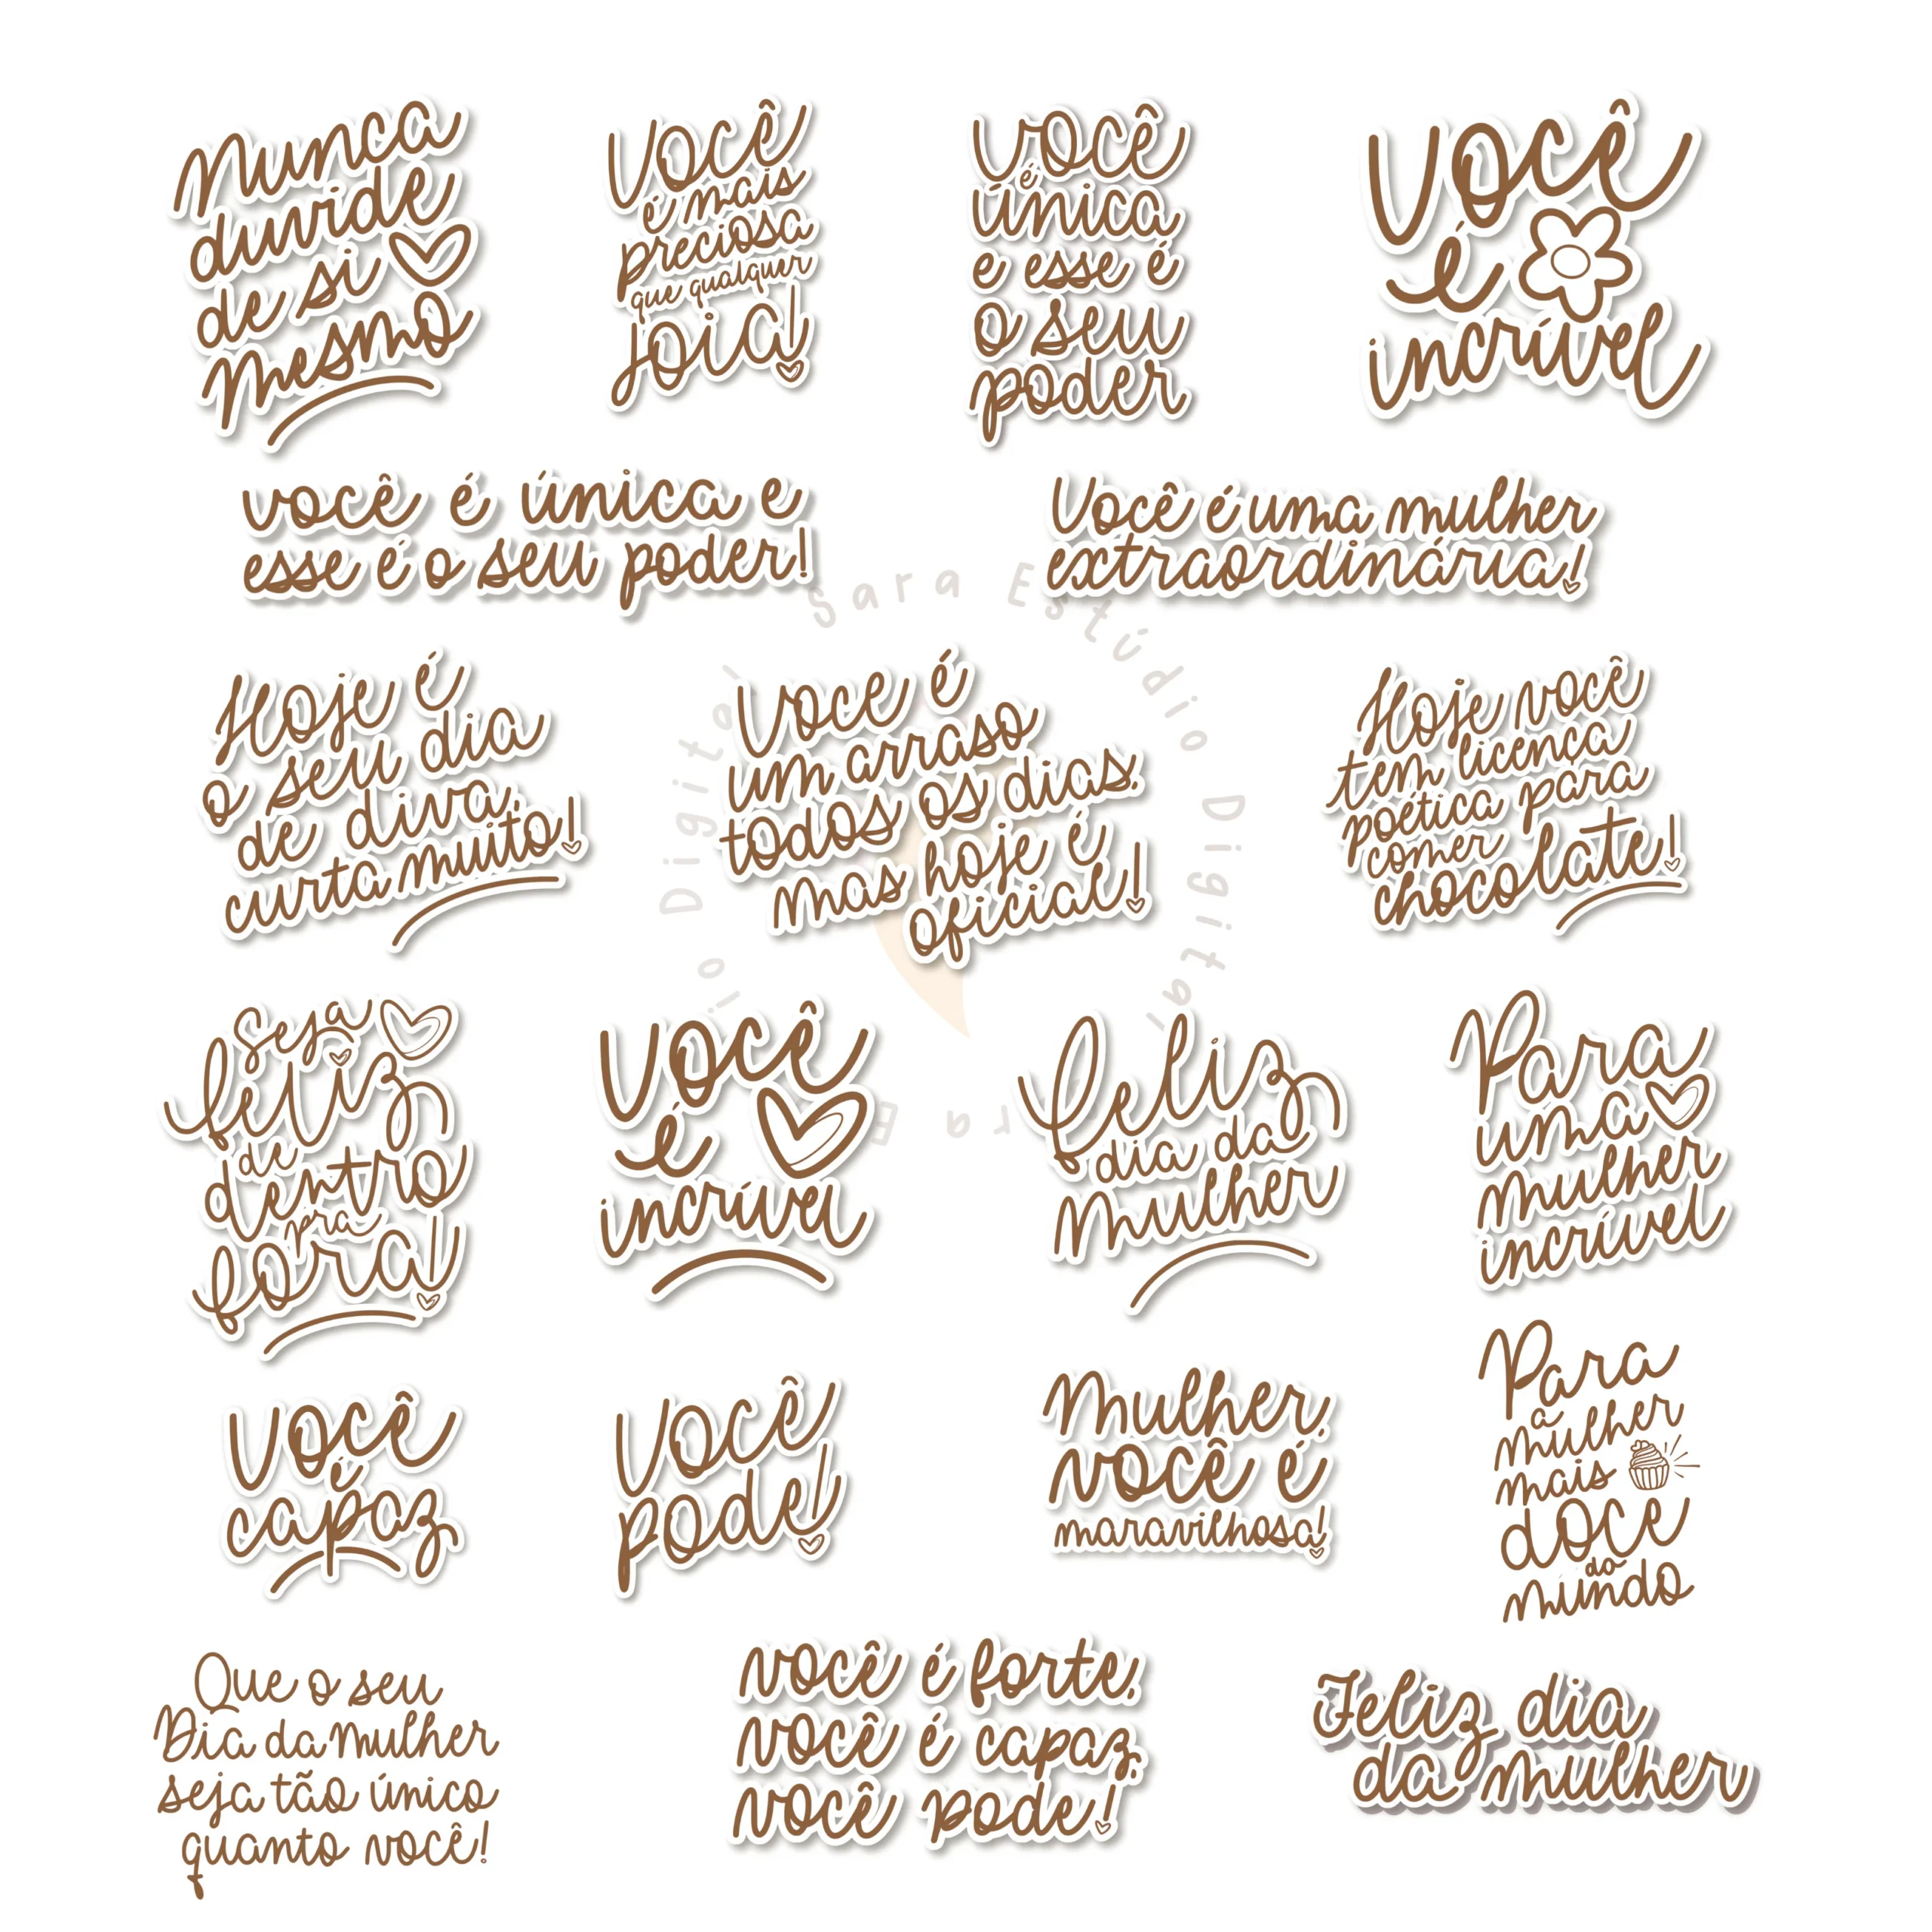 Nunca
duvide
de si
mesmo
Você
é mais
preciosa
que qualquer
joia!
Você
é
única
e esse é
o seu
poder
Você
é
incrível
você é única e
esse é o seu poder!
Você é uma mulher
extraordinária!
Hoje é
o seu dia
de diva,
curta muito!
Voce é
um arraso
todos os dias,
mas hoje é
oficial!
Hoje você
tem licença
poética para
comer
chocolate!
Seja
feliz
de
dentro
pra
fora!
Você
é
incrível
feliz
dia da
mulher
Para
uma
mulher
incrível
Você
é
capaz
Você
pode!
Mulher,
você é
maravilhosa!
Para
a
mulher
mais
doce
do
mundo
Que o seu
Dia da Mulher
seja tão único
quanto você!
você é forte,
você é capaz,
você pode!
Feliz dia
da mulher
Sara Estúdio Digital